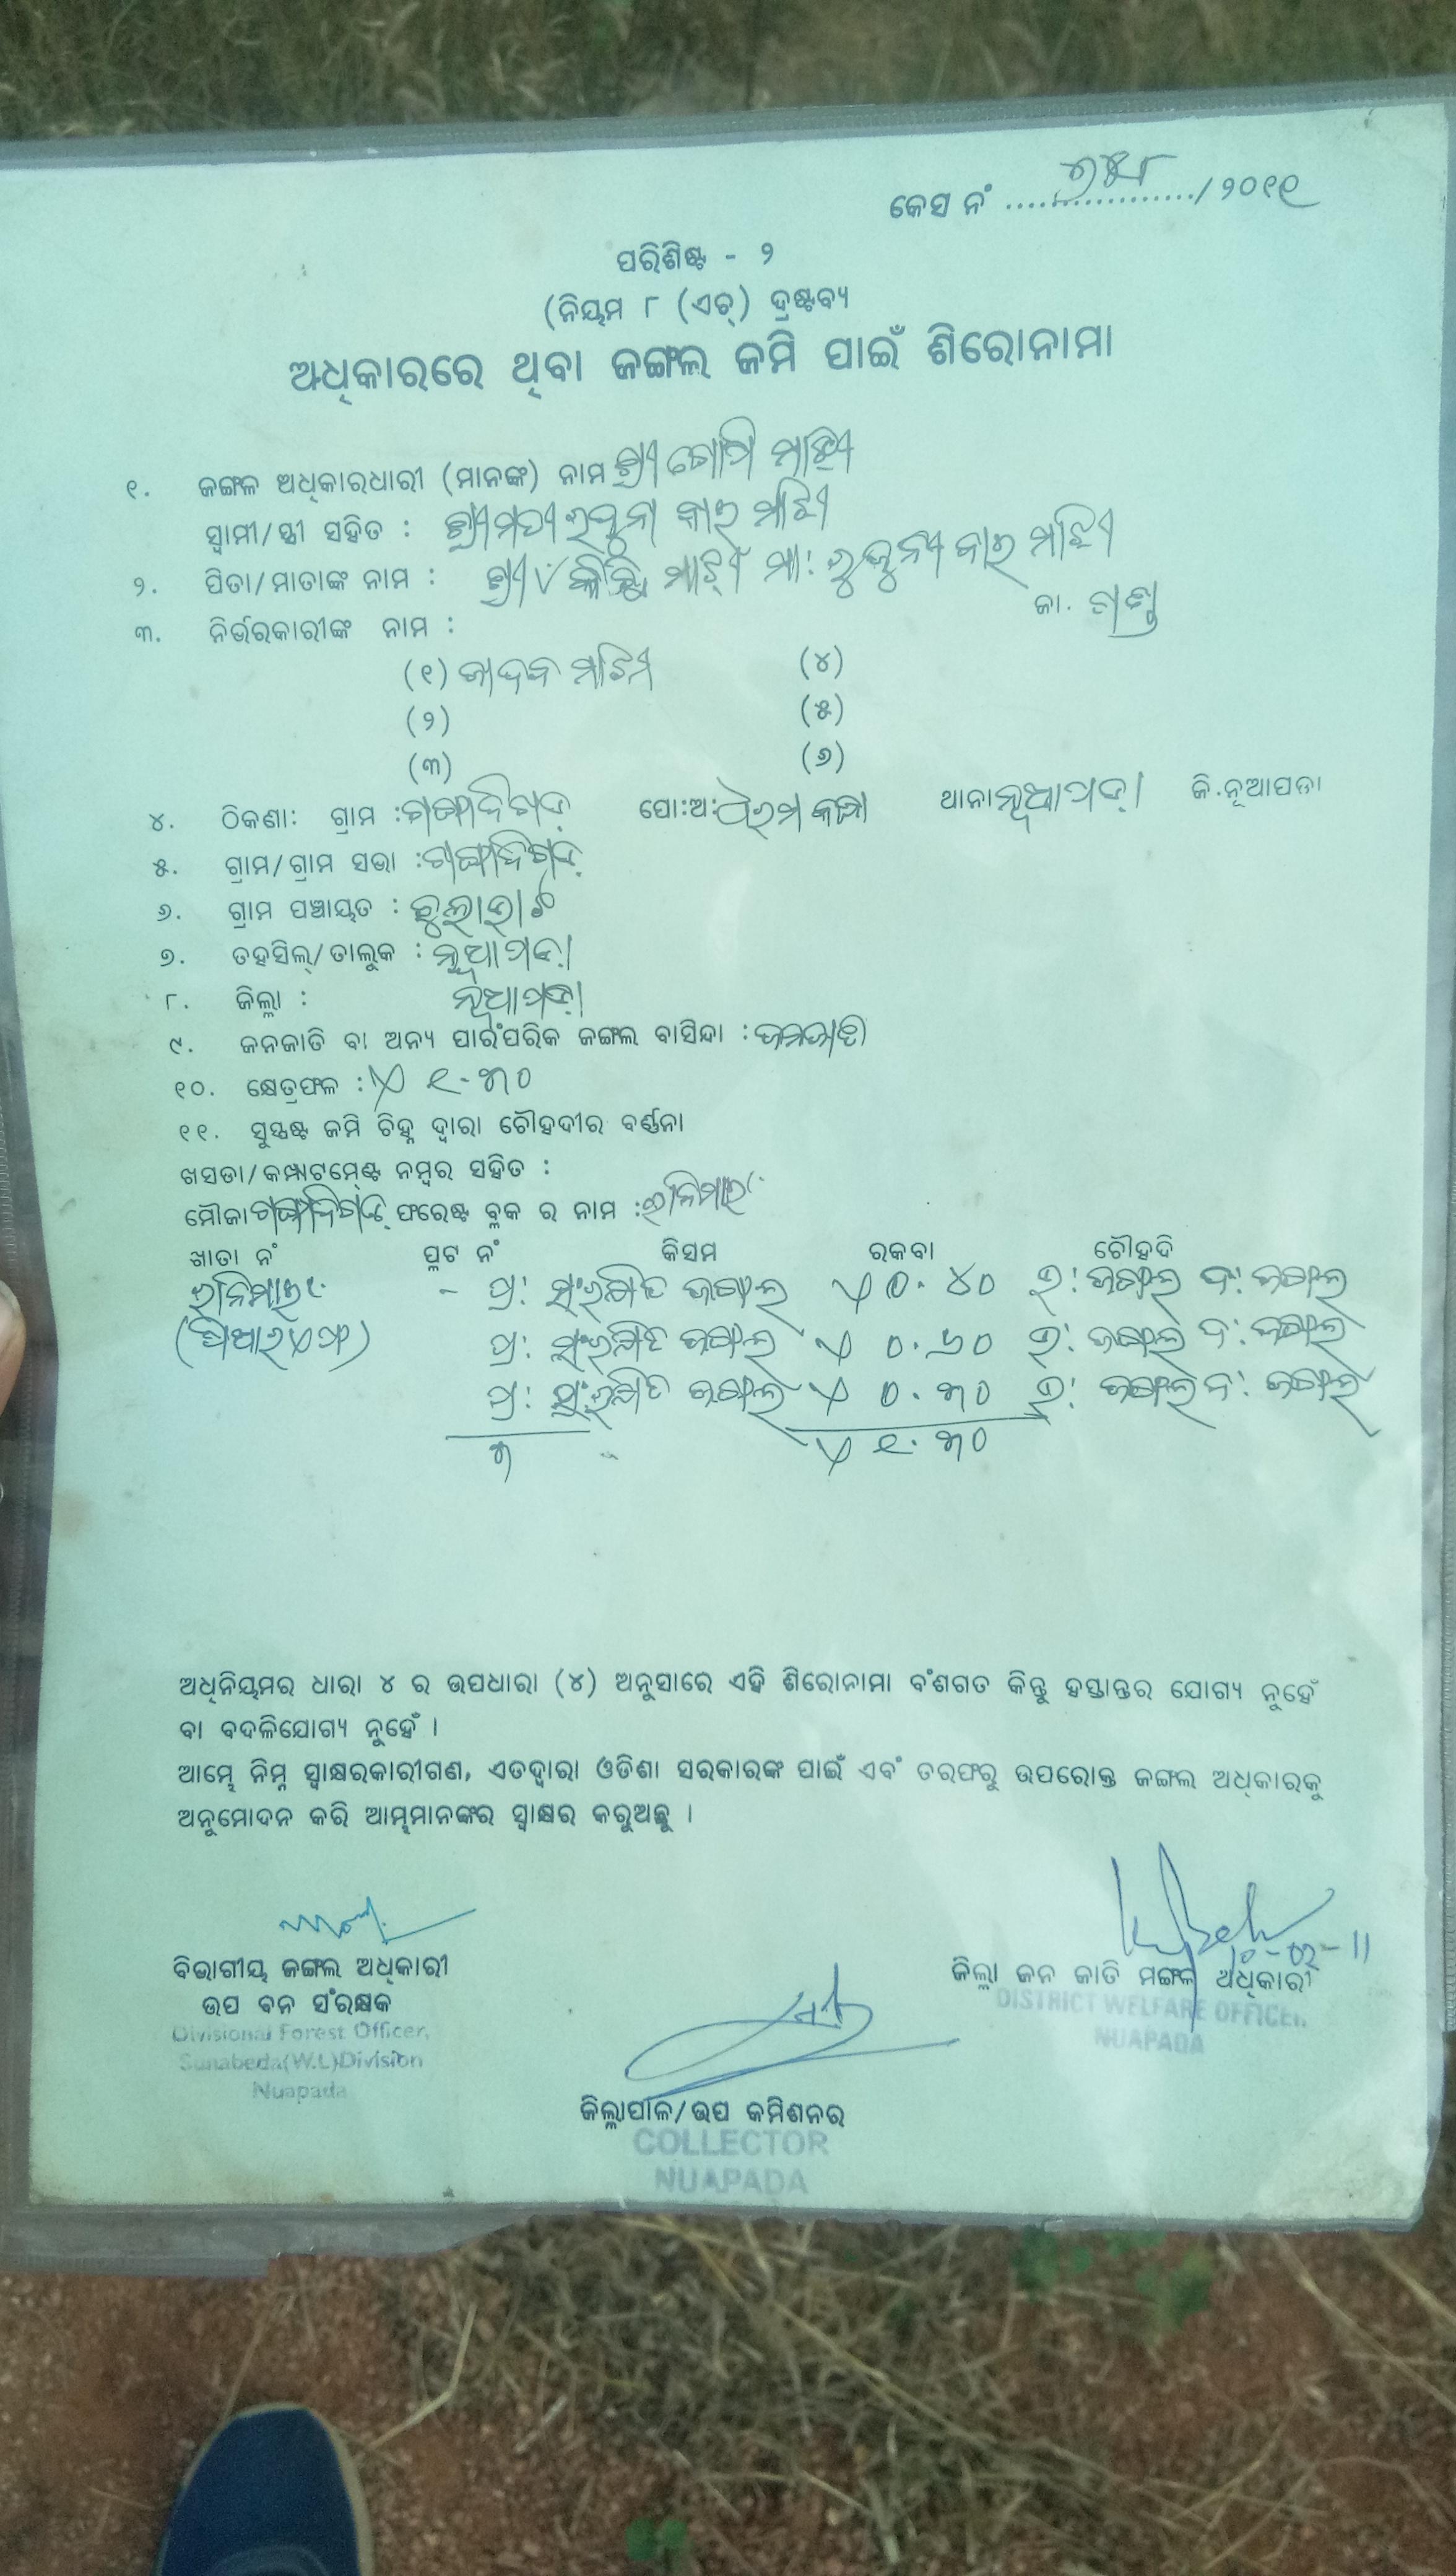 କେସ ନଂ ................../ ୨୦୧୧
ପରିଶିଷ୍ଟ - ୨
(ନିୟମ ୮ (ଏଚ୍) ଦ୍ରଷ୍ଟବ୍ୟ
ଅଧିକାରରେ ଥିବା ଜଙ୍ଗଲ ଜମି ପାଇଁ ଶିରୋନାମା
୧. ଜଙ୍ଗଳ ଅଧିକାରଧାରୀ (ମାନଙ୍କ) ନାମ ଶ୍ରୀ ଗୋପି ମାଝୀ
ସ୍ୱାମୀ/ସ୍ତ୍ରୀ ସହିତ : ଶ୍ରୀମତୀ ବାଇ ମାଝି
୨. ପିତା/ମାତାଙ୍କ ନାମ : ଶ୍ରୀ ମାଝୀ ମା: ବାଇ ମାଝି
ଜା. ଗଣ୍ଡ
୩. ନିର୍ଭରକାରୀଙ୍କ ନାମ :
(୧) ଜାଦବ ମାଝି (୪)
(୨) (୫)
(୩) (୬)
୪. ଠିକଣା: ଗ୍ରାମ : ପୋ:ଅ: ଥାନା ନୂଆପଡ଼ା ଜି.ନୂଆପଡା
୫. ଗ୍ରାମ/ଗ୍ରାମ ସଭା :
୬. ଗ୍ରାମ ପଞ୍ଚାୟତ :
୭. ତହସିଲ୍/ତାଲୁକ : ନୂଆପଡ଼ା
୮. ଜିଲ୍ଲା : ନୂଆପଡ଼ା
୯. ଜନଜାତି ବା ଅନ୍ୟ ପାରଂପରିକ ଜଙ୍ଗଲ ବାସିନ୍ଦା : ଜନଜାତି
୧୦. କ୍ଷେତ୍ରଫଳ : ୧.୩୦
୧୧. ସୁସ୍ପଷ୍ଟ ଜମି ଚିହ୍ନ ଦ୍ୱାରା ଚୌହଦୀର ବର୍ଣ୍ଣନା
ଖସଡା/କମ୍ପାଟମେଣ୍ଟ ନମ୍ବର ସହିତ :
ମୌଜା ଫରେଷ୍ଟ ବ୍ଲକ ର ନାମ :
ଖାତା ନଂ ପ୍ଲଟ ନଂ କିସମ ରକବା ଚୌହଦି
- ପ୍ର: ସଂରକ୍ଷିତ ଜଙ୍ଗଲ ୦.୪୦ ଉ: ଜଙ୍ଗଲ ଦ: ଜଙ୍ଗଲ
ପ୍ର: ସଂରକ୍ଷିତ ଜଙ୍ଗଲ ୦.୬୦ ଉ: ଜଙ୍ଗଲ ଦ: ଜଙ୍ଗଲ
ପ୍ର: ସଂରକ୍ଷିତ ଜଙ୍ଗଲ ୦.୩୦ ଉ: ଜଙ୍ଗଲ ଦ: ଜଙ୍ଗଲ
୩ ୧.୩୦
ଅଧିନିୟମର ଧାରା ୪ ର ଉପଧାରା (୪) ଅନୁସାରେ ଏହି ଶିରୋନାମା ବଂଶଗତ କିନ୍ତୁ ହସ୍ତାନ୍ତର ଯୋଗ୍ୟ ନୁହେଁ
ବା ବଦଳିଯୋଗ୍ୟ ନୁହେଁ ।
ଆମ୍ଭେ ନିମ୍ନ ସ୍ୱାକ୍ଷରକାରୀଗଣ, ଏତଦ୍ୱାରା ଓଡିଶା ସରକାରଙ୍କ ପାଇଁ ଏବଂ ତରଫରୁ ଉପରୋକ୍ତ ଜଙ୍ଗଲ ଅଧିକାରକୁ
ଅନୁମୋଦନ କରି ଆମ୍ଭମାନଙ୍କର ସ୍ୱାକ୍ଷର କରୁଅଛୁ ।
ବିଭାଗୀୟ ଜଙ୍ଗଲ ଅଧିକାରୀ
ଉପ ବନ ସଂରକ୍ଷକ
Divisional Forest Officer,
Sunabeda(W.L)Division
Nuapada
ଜିଲ୍ଲା ଜନ ଜାତି ମଙ୍ଗଳ ଅଧିକାରୀ
DISTRICT WELFARE OFFICER,
NUAPADA
ଜିଲ୍ଲାପାଳ/ଉପ କମିଶନର
COLLECTOR
NUAPADA